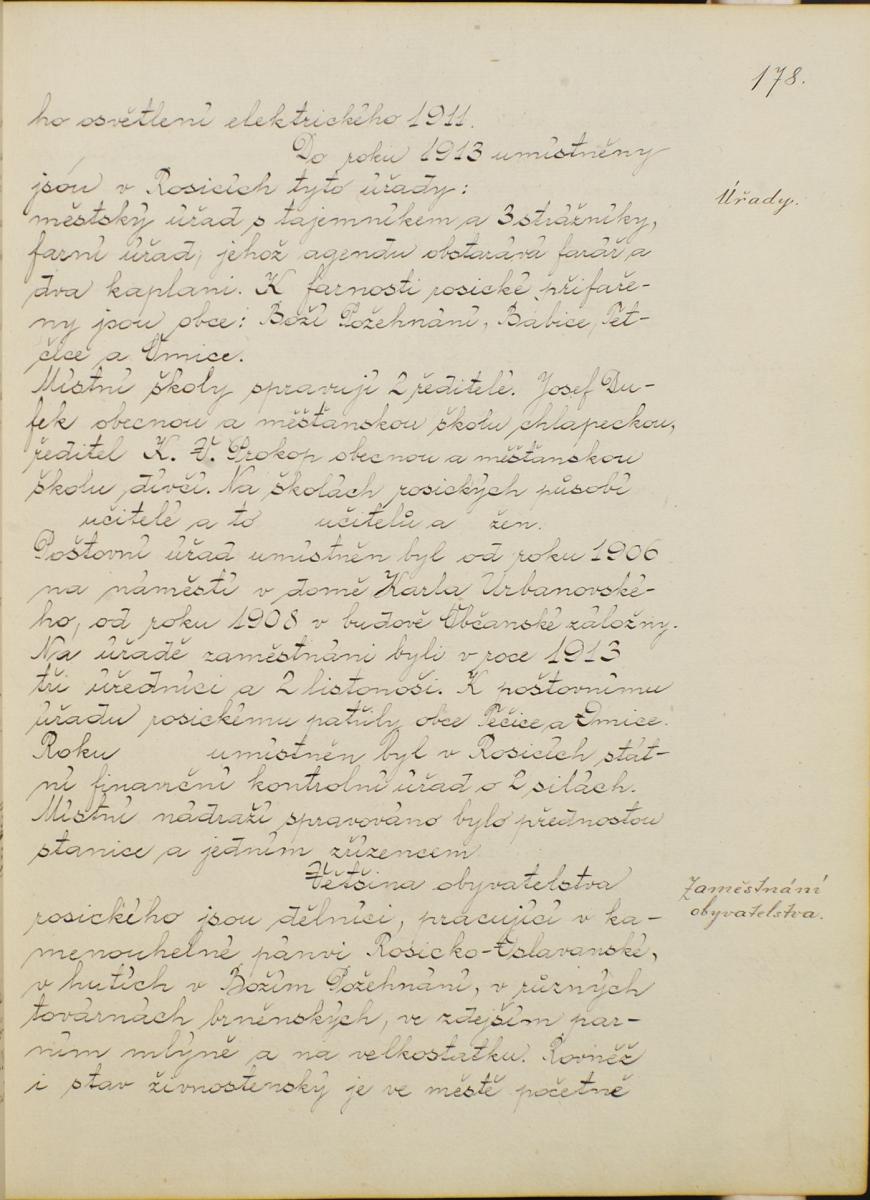 178.
ho osvětlení elektrického 1911.
Do roku 1913 umístněny
jsou v Rosicích tyto úřady:
Úřady.
městský úřad s tajemníkem a 3 strážníky,
farní úřad, jehož agendu obstarává farář a
dva kaplani. K farnosti rosické přifaře-
ny jsou obce: Boží Požehnání, Babice, Tet-
čice a Omice.
Místní školy spravují 2 ředitelé. Josef Du-
fek obecnou a měšťanskou školu chlapeckou,
ředitel K. V. Prokop obecnou a měšťanskou
školu dívčí. Na školách rosických působí
učitelé a to učitelů a žen.
Poštovní úřad umístněn byl od roku 1906
na náměstí v domě Karla Urbanovské-
ho, od roku 1908 v budově Občanské záložny.
Na úřadě zaměstnáni byli v roce 1913
tři úředníci a 2 listonoši. K poštovnímu
úřadu rosickému patřily obce Tečice a Omice.
Roku umístněn byl v Rosicích stát-
ní finanční kontrolní úřad o 2 silách.
Místní nádraží spravováno bylo přednostou
stanice a jedním zřízencem
Většina obyvatelstva
Zaměstnání
obyvatelstva.
rosického jsou dělníci, pracující v ka-
menouhelné pánvi Rosicko-Oslavanské,
v hutích v Božím Požehnání, v různých
továrnách brněnských, ve zdejším par-
ním mlýně a na velkostatku. Rovněž
i stav živnostenský je ve městě početně